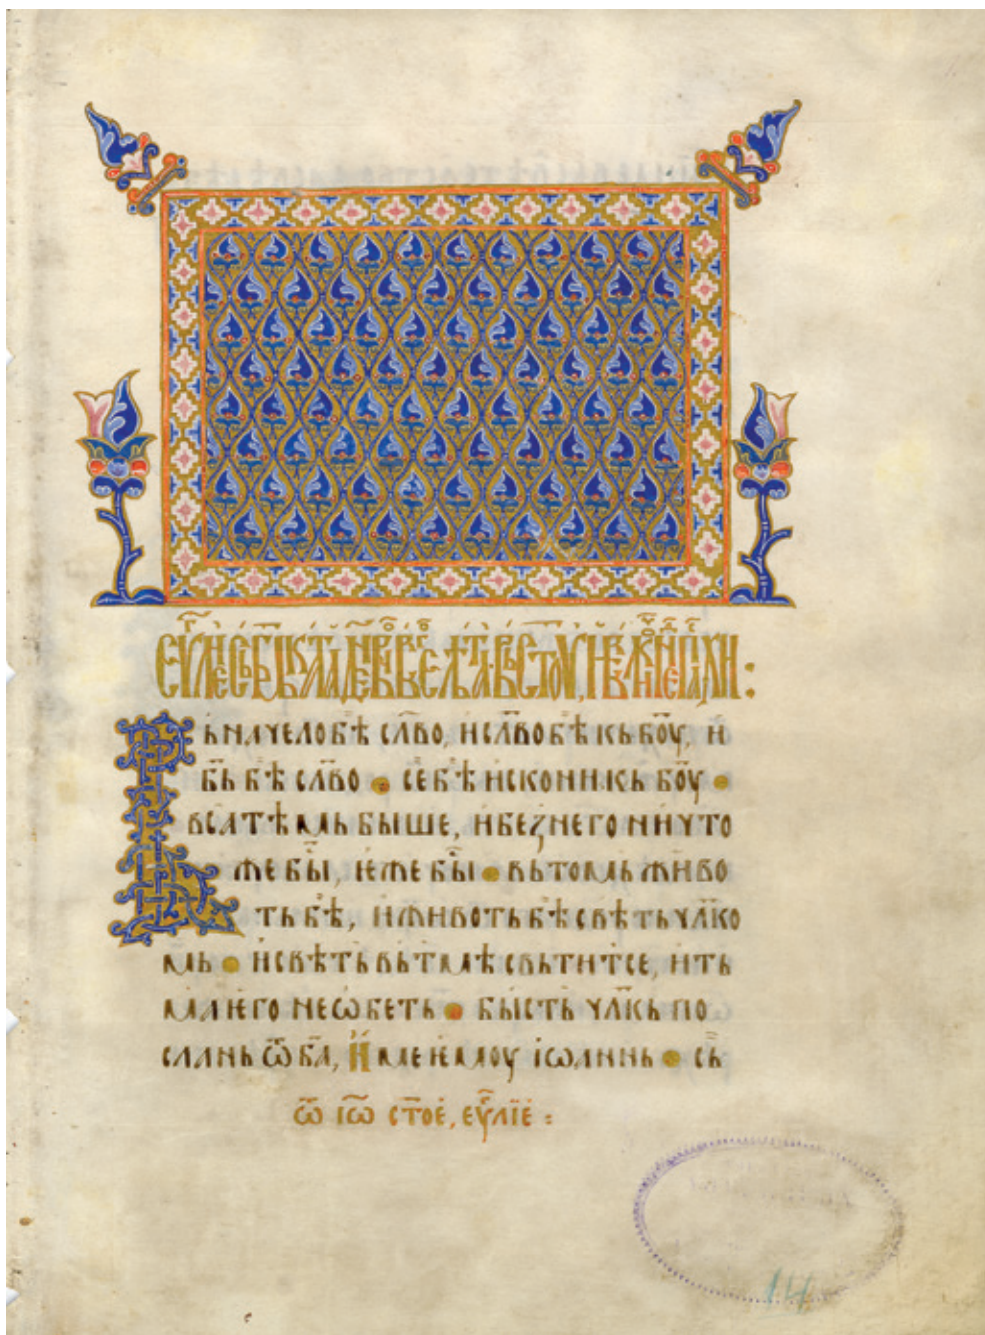 Въ начелѡ бѣ сло҃во, и сло҃во бѣ къ бо҃у, и
бь҃ бѣ сло҃во • се бѣ искони къ бо҃у •
всꙗ тѣмь быше, и без него ничто
же бы҃, ѥже бы҃ • въ томь живо
ть бѣ, и животь бѣ свѣть чл҃ко
мь • и свѣть вь тмѣ свьтитсе, и ть
ма ѥго не ѡбеть • бысть чл҃кь по
слань ѿ б҃а, име ѥмоу іѡаннь • сь
ѿ іѡ҃ ст҃оѥ, еѵ҃лїе :
14